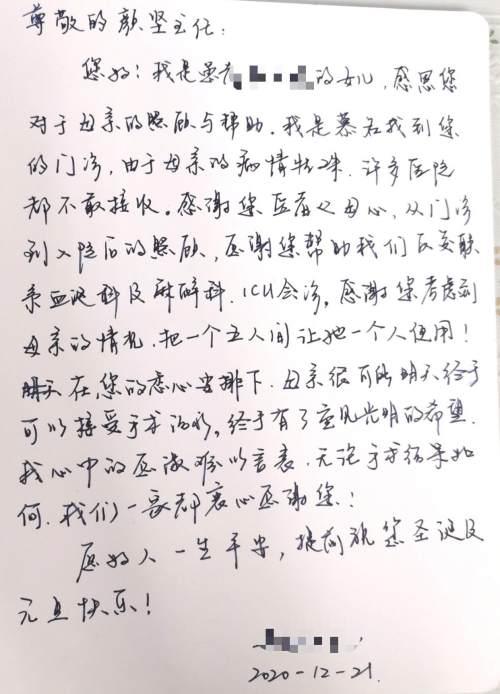 尊敬的颜坚主任:
您好!我是患者的女儿,感恩您
对于母亲的照顾与帮助.我是慕名找到您
的门诊,由于母亲的病情特殊.许多医院
都不敢接收。感谢您医者父母心,从门诊
到入院后的照顾,感谢您帮助我们反复联
系血液科及麻醉科.ICU会诊。感谢您考虑到
母亲的情况.把一个三人间让她一个人使用!
在您的悉心安排下.母亲很可能明天终于
可以接受手术治疗。终于有了重见光明的希望.
我心中的感激难以言表.无论手术结果如
何.我们一家都衷心感谢您!
愿好人一生平安,提前祝您圣诞及
元旦快乐!
2020-12-21.